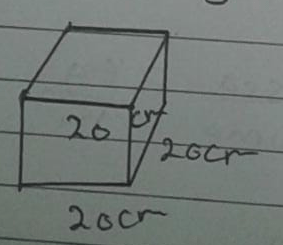 20 cm
20cm
20cm